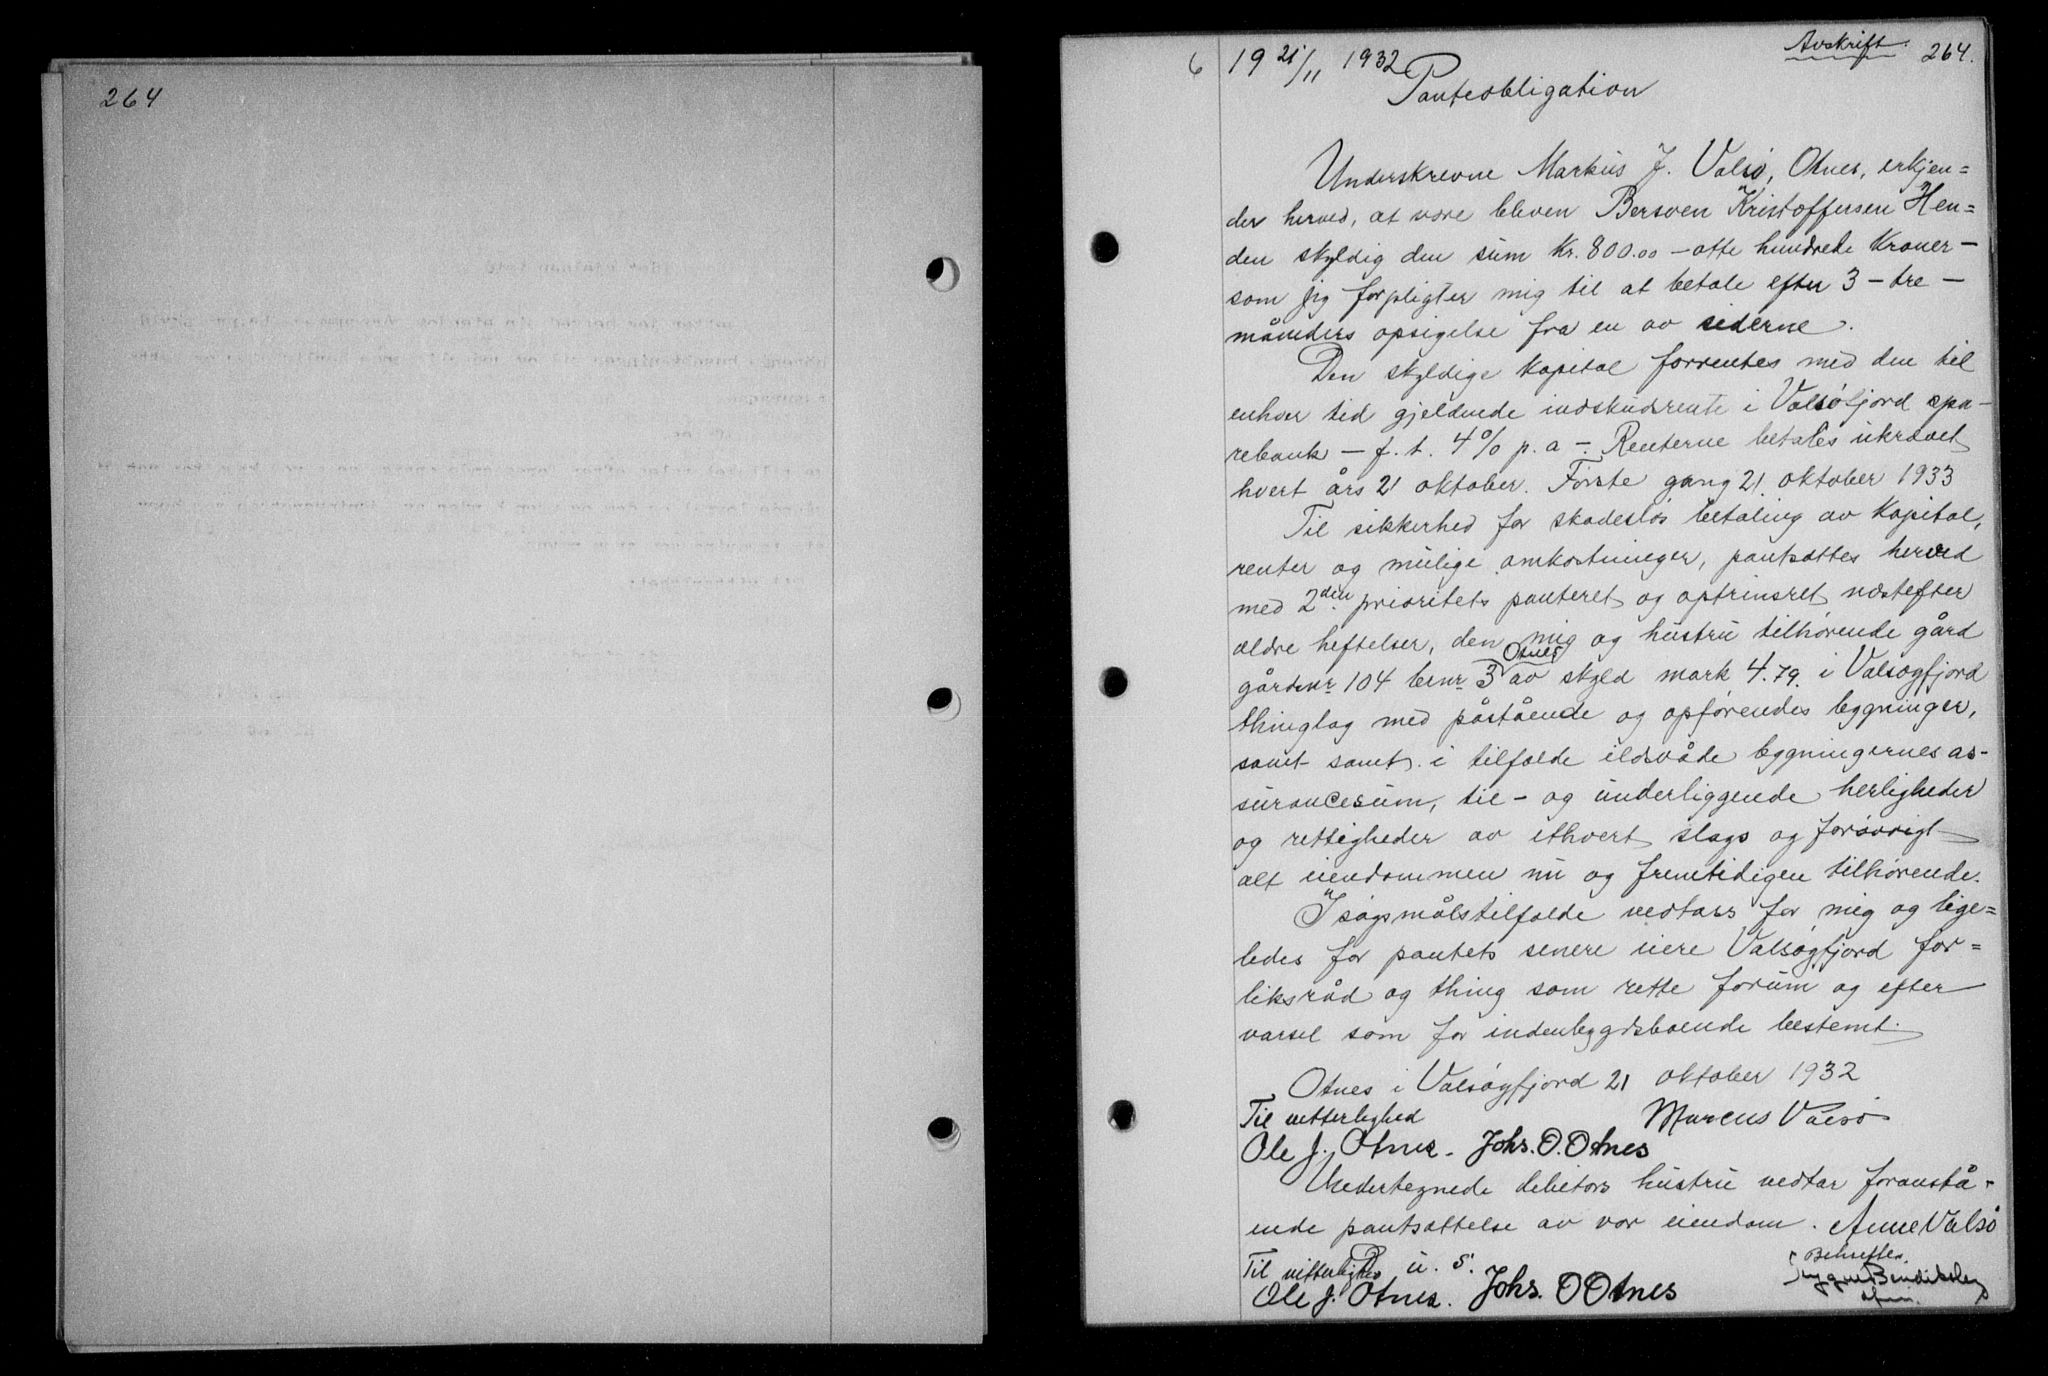 264
Avskrift. 264.
6 19 21/11 1932
Panteobligation
Underskrevne Markus J. Valsø, Otnes, erkjen=
der herved, at være bleven Bersven Kristoffersen Hen=
den skyldig den sum Kr. 800.00 – otte hundrede Kroner –
som jeg forpligter mig til at betale efter 3 – tre –
måneders opsigelse fra en av siderne.
Den skyldige Kapital forrentes med den til
enhver tid gjeldende indskudsrente i Valsøfjord spa-
rebank – f. t. 4% p. a –. Renterne betales ukrævet
hvert års 21 oktober. Første gang 21 oktober 1933
Til sikkerhed for skadesløs betaling av Kapital,
renter og mulige omkostninger, pantsættes herved
med 2den prioritets panteret og optrinsret næstefter
ældre heftelser, den mig og hustru tilhørende gård
Otnes
gårdsnr 104 brnr 3 av skyld mark 4.79. i Valsøyfjord
thinglag med påstående og opførendes bygninger,
samt samt i tilfælde ildsvåde bygningernes as-
surancesum, til- og underliggende herligheder
og rettigheder av ethvert slags og forøvrigt
alt eiendommen nu og fremtidigen tilhørende.
I søgsmålstilfælde vedtaes for mig og lige=
ledes for pantets senere eiere Valsøyfjord for=
liksråd og thing som rette forum og efter
varsel som for indenbygdsboende bestemt.
Otnes i Valsøyfjord 21 oktober 1932
Til vitterlighed Marcus Valsø
Ole J. Otnes. Johs. O. Otnes
Undertegnede debitors hustru vedtar foranstå-
ende pantsættelse av vor eiendom. Anne Valsø
Til vitterlighed u. s. Bekreftes.
Ole J. Otnes. Johs. O Otnes Trygve Bendiksen